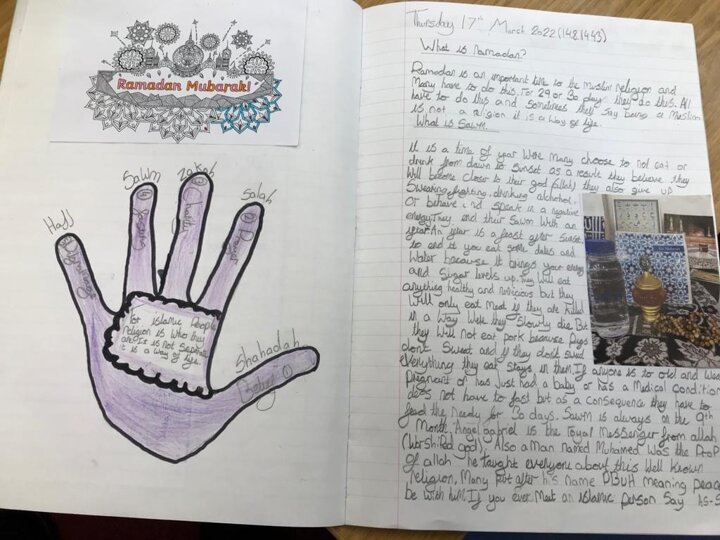 Ramadan Mubarak!
Hajj
Sawm
Zakah
Salah
Shahadah
Pilgrimage
Belief ①
For islamic people
religion is who they
are. It is not seperate
it is a way of life.
Thursday 17th March 2022 (14.8.1443)
What is ramadan?
Ramadan is an important time to the muslim religion and
Many have to do this. For 29 or 30 days they do this. All
have to do this and sometimes they say being a Muslim
is not a religion it is a way of life.
What is Sawm
It is a time of year were many choose to not eat or
drink from dawn to sunset as a result they believe they
will become closer to their god (allah) they also give up
Swearing, fighting, drinking alchohol.
Or behave and speak in a negative
energy. They end their Sawm with an
year is a feast after sunset.
to end it you eat some dates and
Water because it brings your energy
and sugar levels up. They will eat
anything healthy and delicious but they
will only eat meat is they are killed
in a way were they slowly die. But
they will not eat pork because pigs
dont sweat and if they dont sweat
everything they eat stays in them. If anyone is to old and weak
pregnent or has just had a baby or has a Medical condition
does not have to fast but as a consequence they have to
feed the needy for 30 days. Sawm is always on the 9th
Month. Angel gabriel is the royal Messenger from allah
(Worshiped god). Also a Man named Muhamed was the Prop
Of allah he taught everyone about this well known
religion. Many put after his name PBUH meaning peace
be with him. If you ever meet an islamic person say AS-S